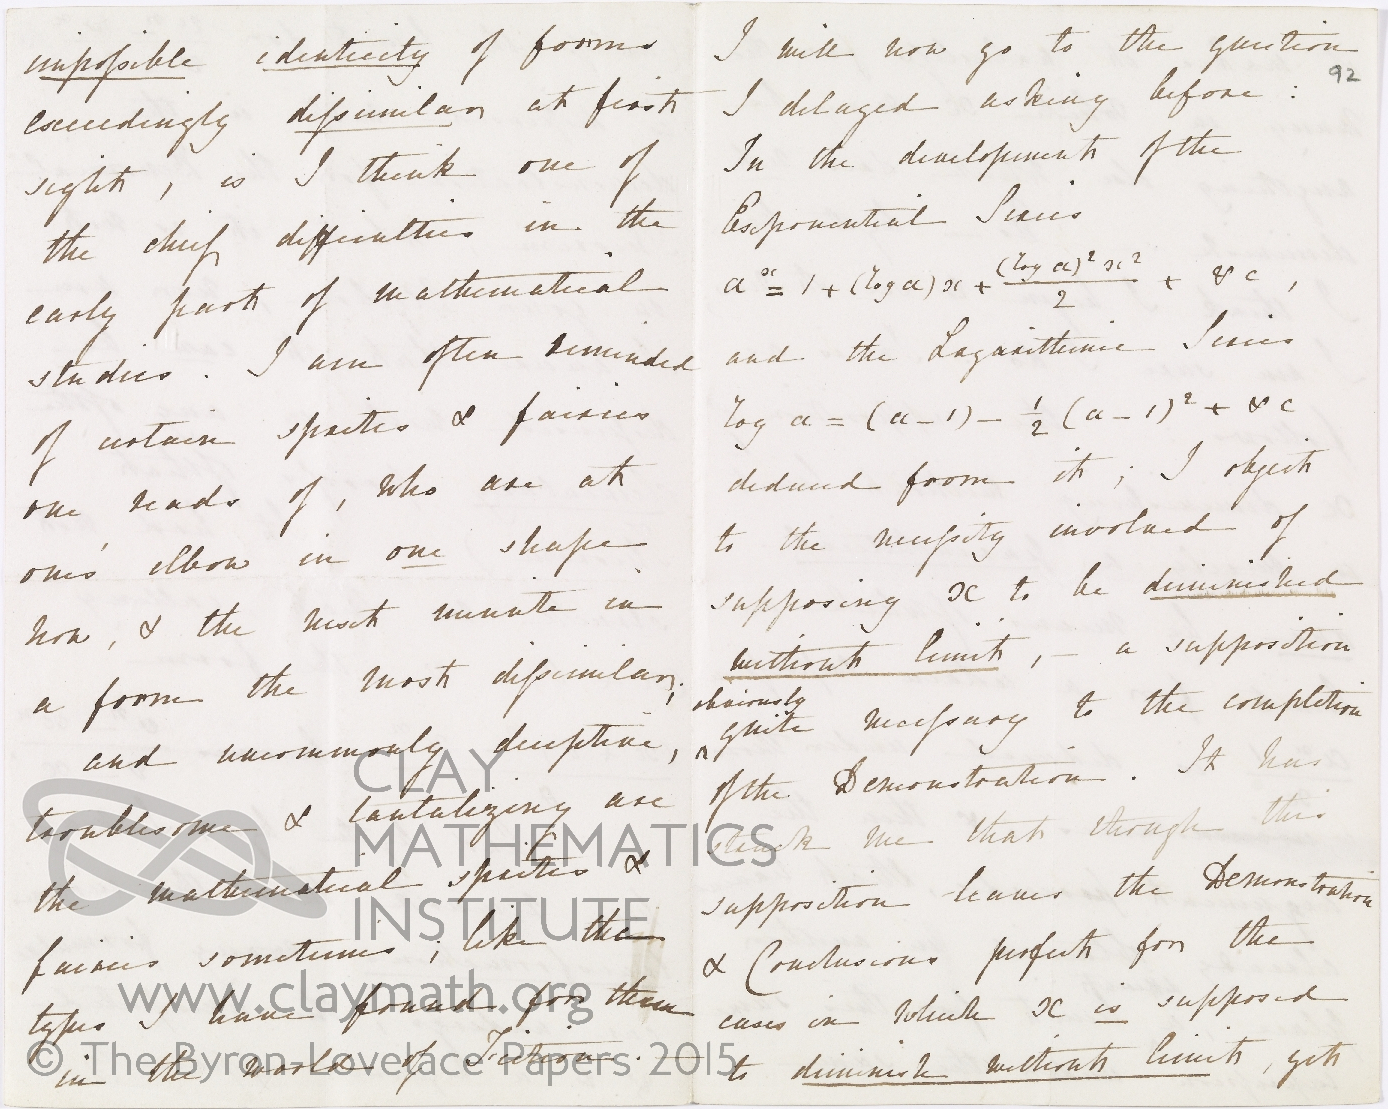 impossible identicity of forms
exceedingly dissimilar at first
sight, is I think one of
the chief difficulties in the
early part of mathematical
studies. I am often reminded
of certain sprites & fairies
one reads of, who are at
one's elbow in one shape
now, & the next minute in
a form the most dissimilar;
and uncommonly deceptive,
troublesome & tantalizing are
the mathematical sprites &
fairies sometimes; like the
types I have found for them
in the world of Fiction.
92
I will now go to the question
I delayed asking before:
In the development of the
Exponential Series
a^x = 1 + (log a)x + (log a)²x²/2 + &c,
and the Logarithmic Series
log a = (a-1) - 1/2 (a-1)² + &c
deduced from it; I object
to the necessity involved of
supposing x to be diminished
without limit, — a supposition
obviously
quite necessary to the completion
of the Demonstration. It has
struck me that though this
supposition leaves the Demonstration
& Conclusions perfect for the
cases in which x is supposed
to diminish without limit, yet
CLAY
MATHEMATICS
INSTITUTE
www.claymath.org
© The Byron-Lovelace Papers 2015